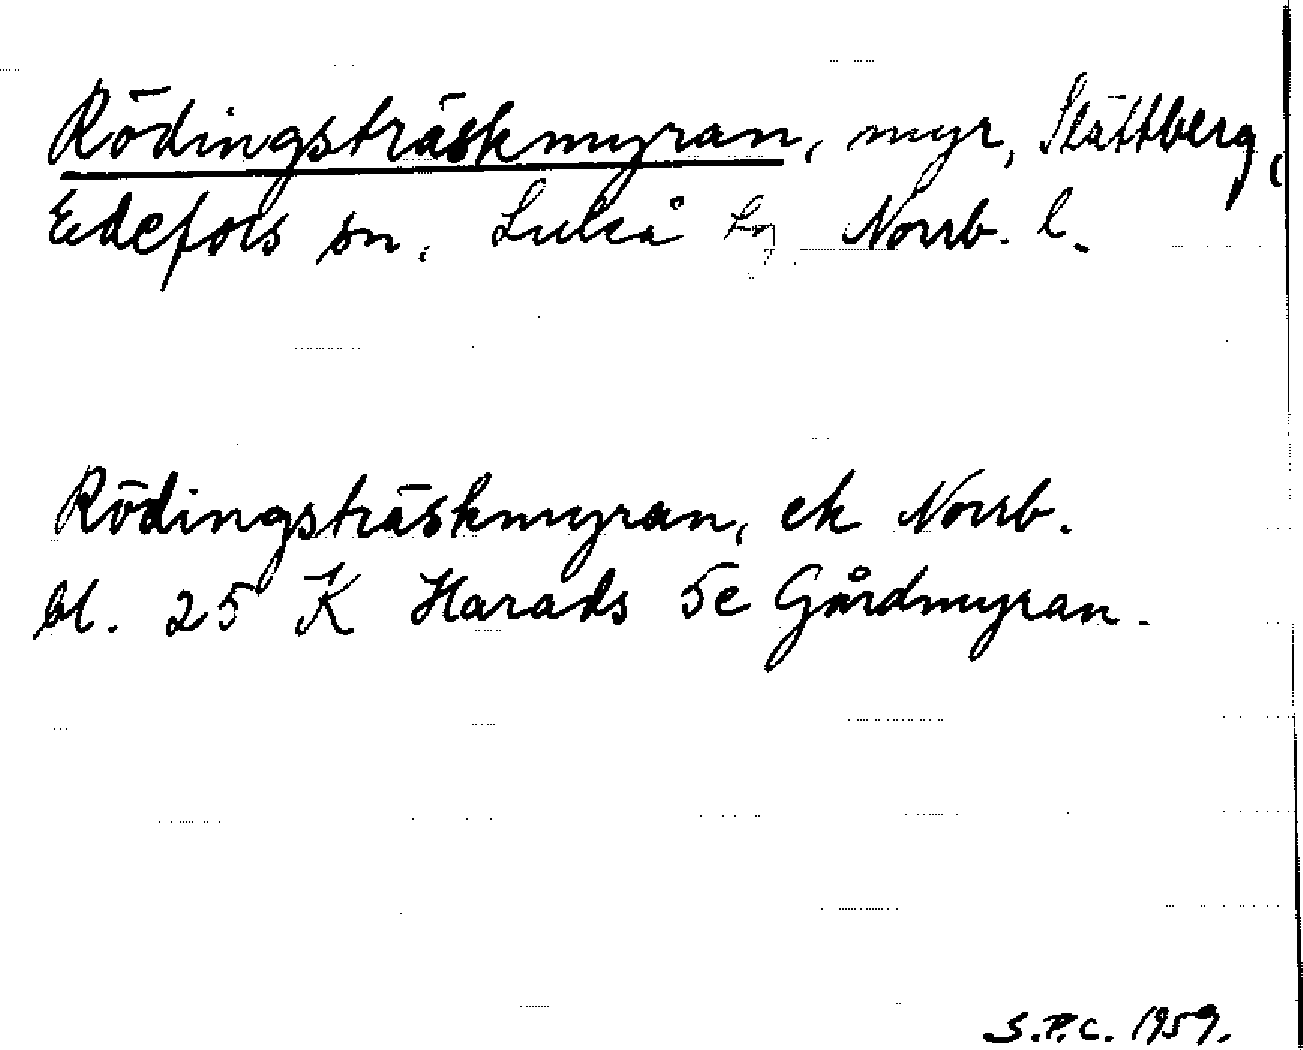 Rödingsträskmyran, myr, Slättberg,
Edefors sn. Luleå tg Norrb. l.
Rödingsträskmyran, ek Norrb.
bl. 25 K Harads 5e Gårdmyran.
S.P.C. 1959.